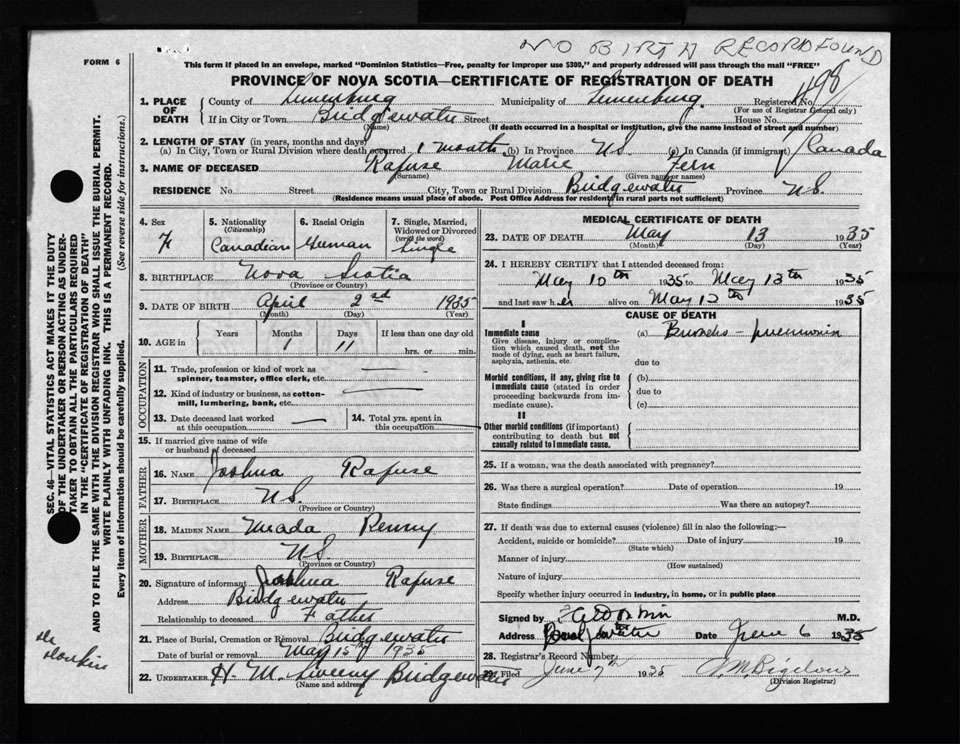 NO BIRTH RECORD FOUND
FORM 6
This form if placed in an envelope, marked "Dominion Statistics—Free, penalty for improper use $300," and properly addressed will pass through the mail "FREE"
PROVINCE OF NOVA SCOTIA—CERTIFICATE OF REGISTRATION OF DEATH
498
1. PLACE OF DEATH
County of Lunenburg Municipality of Lunenburg Registered No.
(For use of Registrar General only)
If in City or Town Bridgewater Street House No.
(Name) (If death occurred in a hospital or institution, give the name instead of street and number)
2. LENGTH OF STAY (in years, months and days)
(a) In City, Town or Rural Division where death occurred 1 Month (b) In Province N.S. (c) In Canada (if immigrant) Canada
3. NAME OF DECEASED Rafuse Marie Fern
(Surname) (Given name or names)
RESIDENCE No. Street City, Town or Rural Division Bridgewater Province N.S.
(Residence means usual place of abode. Post Office Address for residents in rural parts not sufficient)
4. Sex F
5. Nationality (Citizenship) Canadian
6. Racial Origin German
7. Single, Married, Widowed or Divorced (write the word) Single
8. BIRTHPLACE Nova Scotia
(Province or Country)
9. DATE OF BIRTH April 2nd 1935
(Month) (Day) (Year)
10. AGE in Years Months Days If less than one day old
1 11 hrs. or min.
OCCUPATION
11. Trade, profession or kind of work as spinner, teamster, office clerk, etc.
12. Kind of industry or business, as cotton-mill, lumbering, bank, etc.
13. Date deceased last worked at this occupation
14. Total yrs. spent in this occupation
15. If married give name of wife or husband of deceased
FATHER
16. NAME Joshua Rafuse
17. BIRTHPLACE N.S.
(Province or Country)
MOTHER
18. MAIDEN NAME Meada Penny
19. BIRTHPLACE N.S.
(Province or Country)
20. Signature of informant Joshua Rafuse
Address Bridgewater
Relationship to deceased Father
21. Place of Burial, Cremation or Removal Bridgewater
Date of burial or removal May 15th 1935
22. UNDERTAKER H. M. Bridgewater
(Name and address)
MEDICAL CERTIFICATE OF DEATH
23. DATE OF DEATH May 13 1935
(Month) (Day) (Year)
24. I HEREBY CERTIFY that I attended deceased from:
May 10th 1935 to May 13th 1935
and last saw her alive on May 12th 1935
CAUSE OF DEATH
I
Immediate cause
Give disease, injury or complication which caused death, not the mode of dying, such as heart failure, asphyxia, asthenia, etc.
(a) Broncho-pneumonia
due to
Morbid conditions, if any, giving rise to immediate cause (stated in order proceeding backwards from immediate cause).
(b)
due to
(c)
II
Other morbid conditions (if important) contributing to death but not causally related to immediate cause.
25. If a woman, was the death associated with pregnancy?
26. Was there a surgical operation? Date of operation 19
State findings Was there an autopsy?
27. If death was due to external causes (violence) fill in also the following:—
Accident, suicide or homicide? Date of injury 19
(State which)
Manner of injury
(How sustained)
Nature of injury
Specify whether injury occurred in industry, in home, or in public place
Signed by M.D.
Address Bridgewater Date June 6 1935
28. Registrar's Record Number
29. Filed June 7th 1935
(Division Registrar)
SEC. 46—VITAL STATISTICS ACT MAKES IT THE DUTY
OF THE UNDERTAKER OR PERSON ACTING AS UNDER-
TAKER TO OBTAIN ALL THE PARTICULARS REQUIRED
IN THE "CERTIFICATE OF REGISTRATION OF DEATH"
AND TO FILE THE SAME WITH THE DIVISION REGISTRAR WHO SHALL ISSUE THE BURIAL PERMIT.
WRITE PLAINLY WITH UNFADING INK. THIS IS A PERMANENT RECORD.
Every item of information should be carefully supplied. (See reverse side for instructions.)